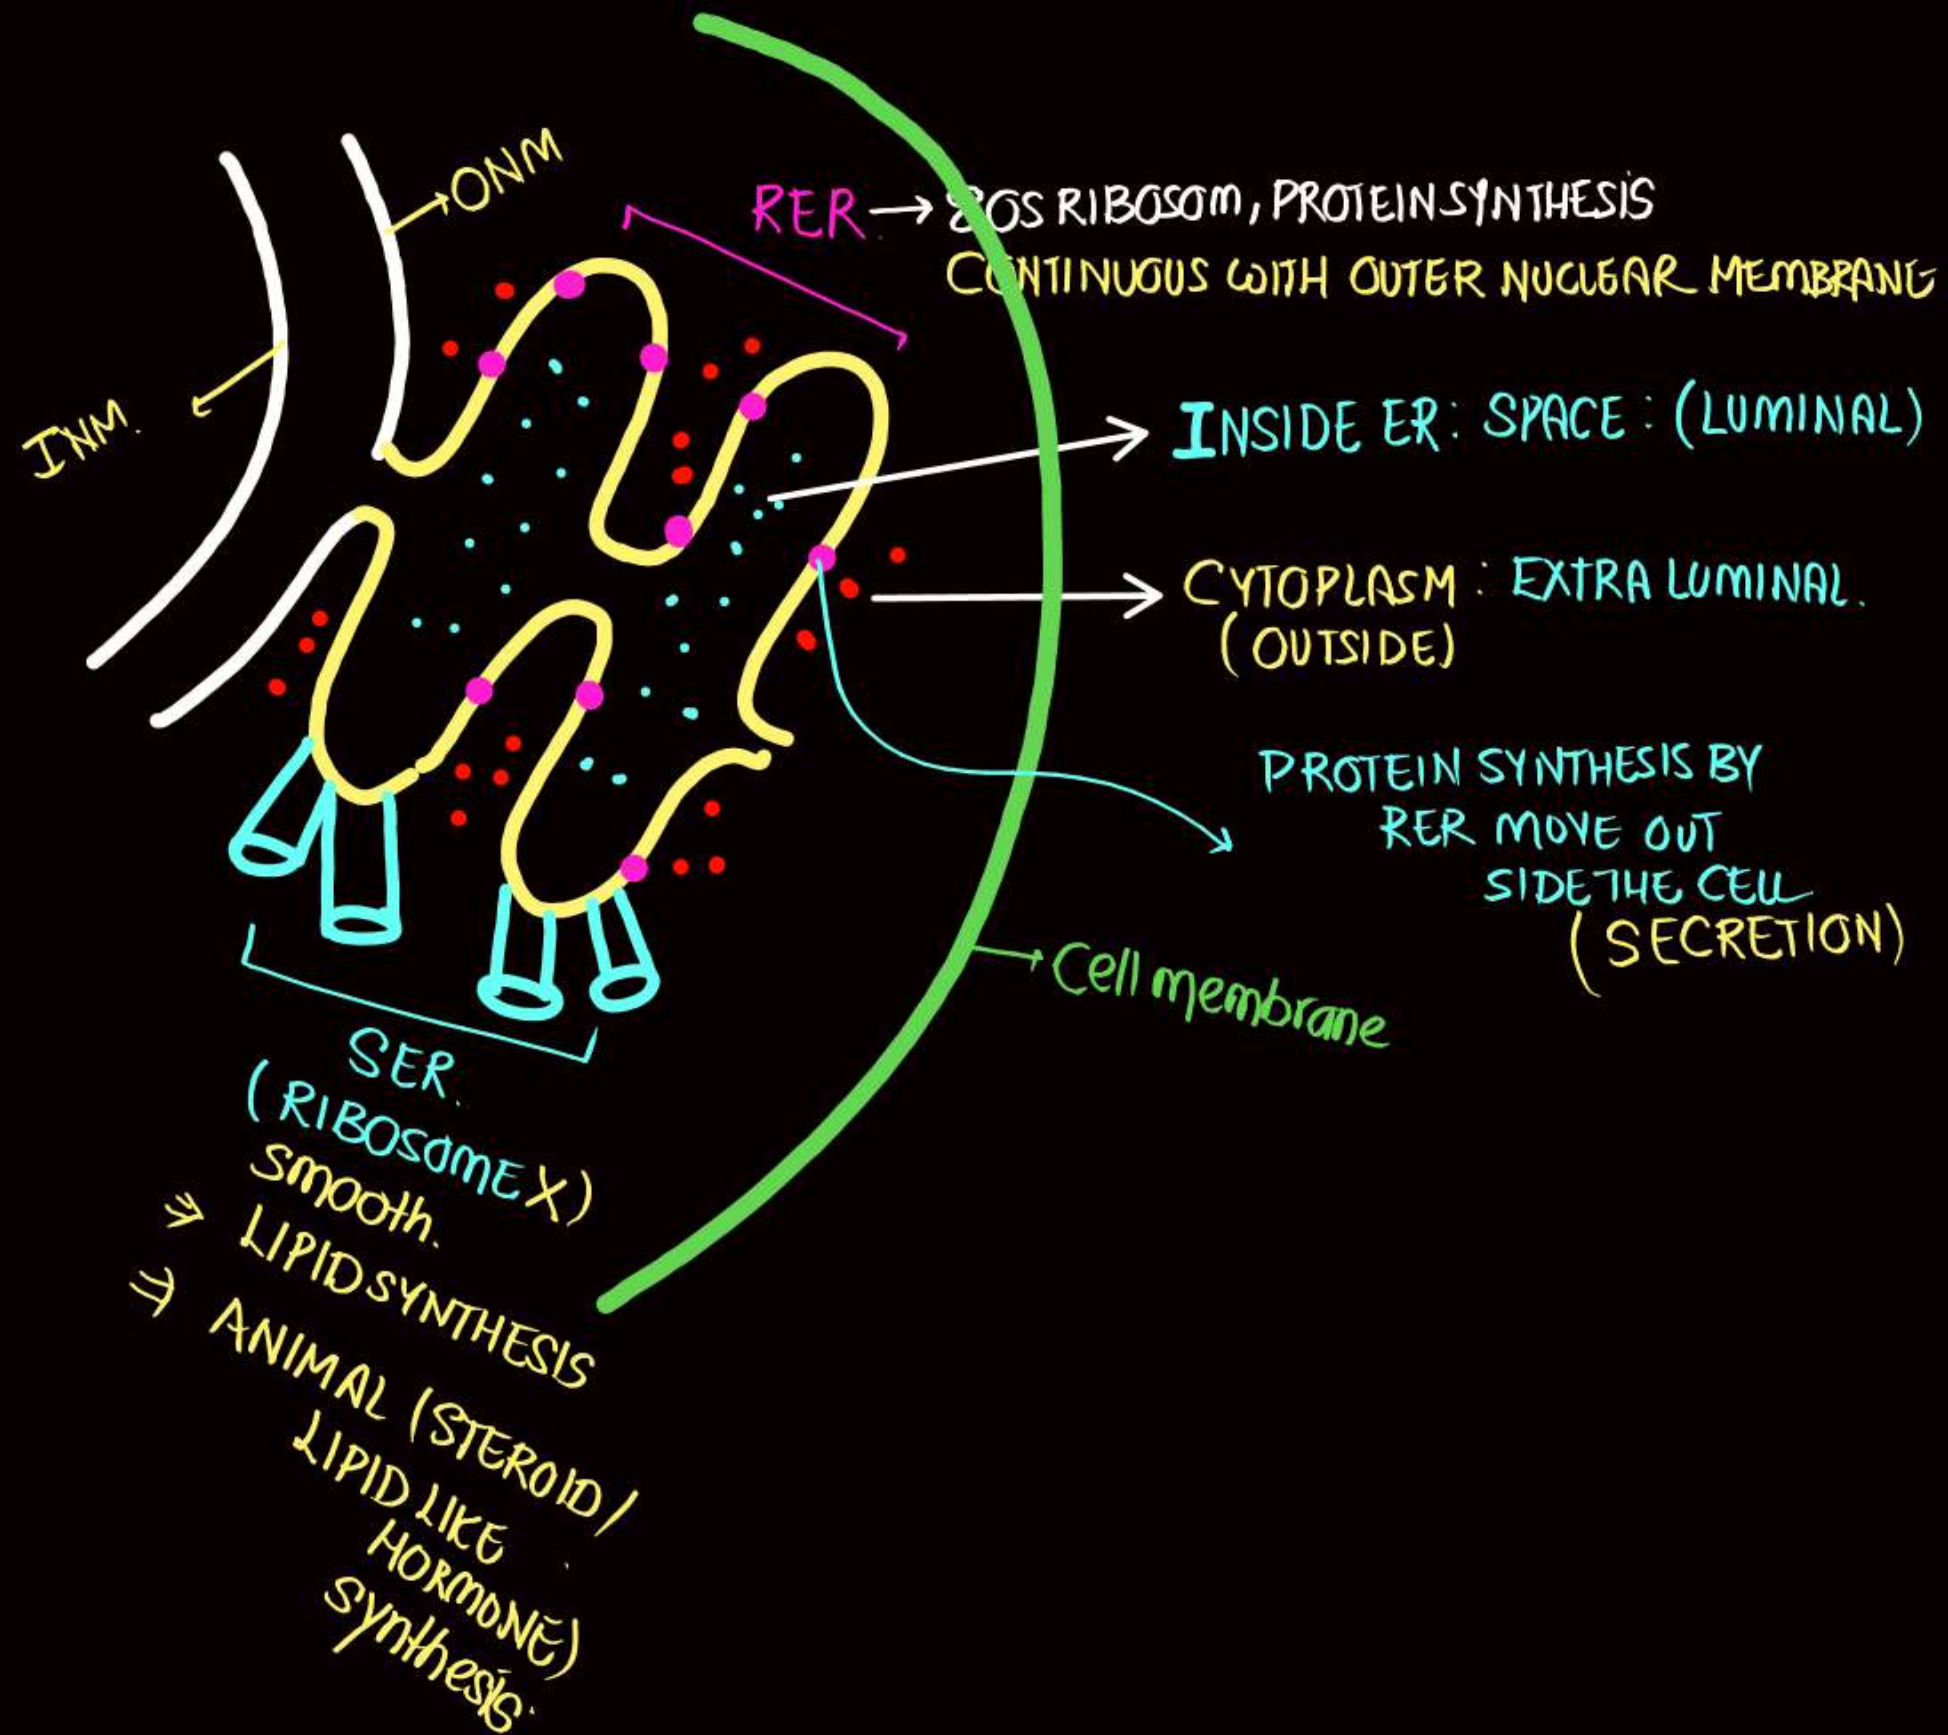 ONM
INM.
RER → 80S RIBOSOM, PROTEIN SYNTHESIS
CONTINUOUS WITH OUTER NUCLEAR MEMBRANE
INSIDE ER: SPACE: (LUMINAL)
CYTOPLASM: EXTRA LUMINAL.
(OUTSIDE)
PROTEIN SYNTHESIS BY
RER MOVE OUT
SIDE THE CELL
(SECRETION)
Cell membrane
SER.
(RIBOSOME X)
Smooth.
⇒ LIPID SYNTHESIS
⇒ ANIMAL (STEROID/
LIPID LIKE
HORMONE)
Synthesis.